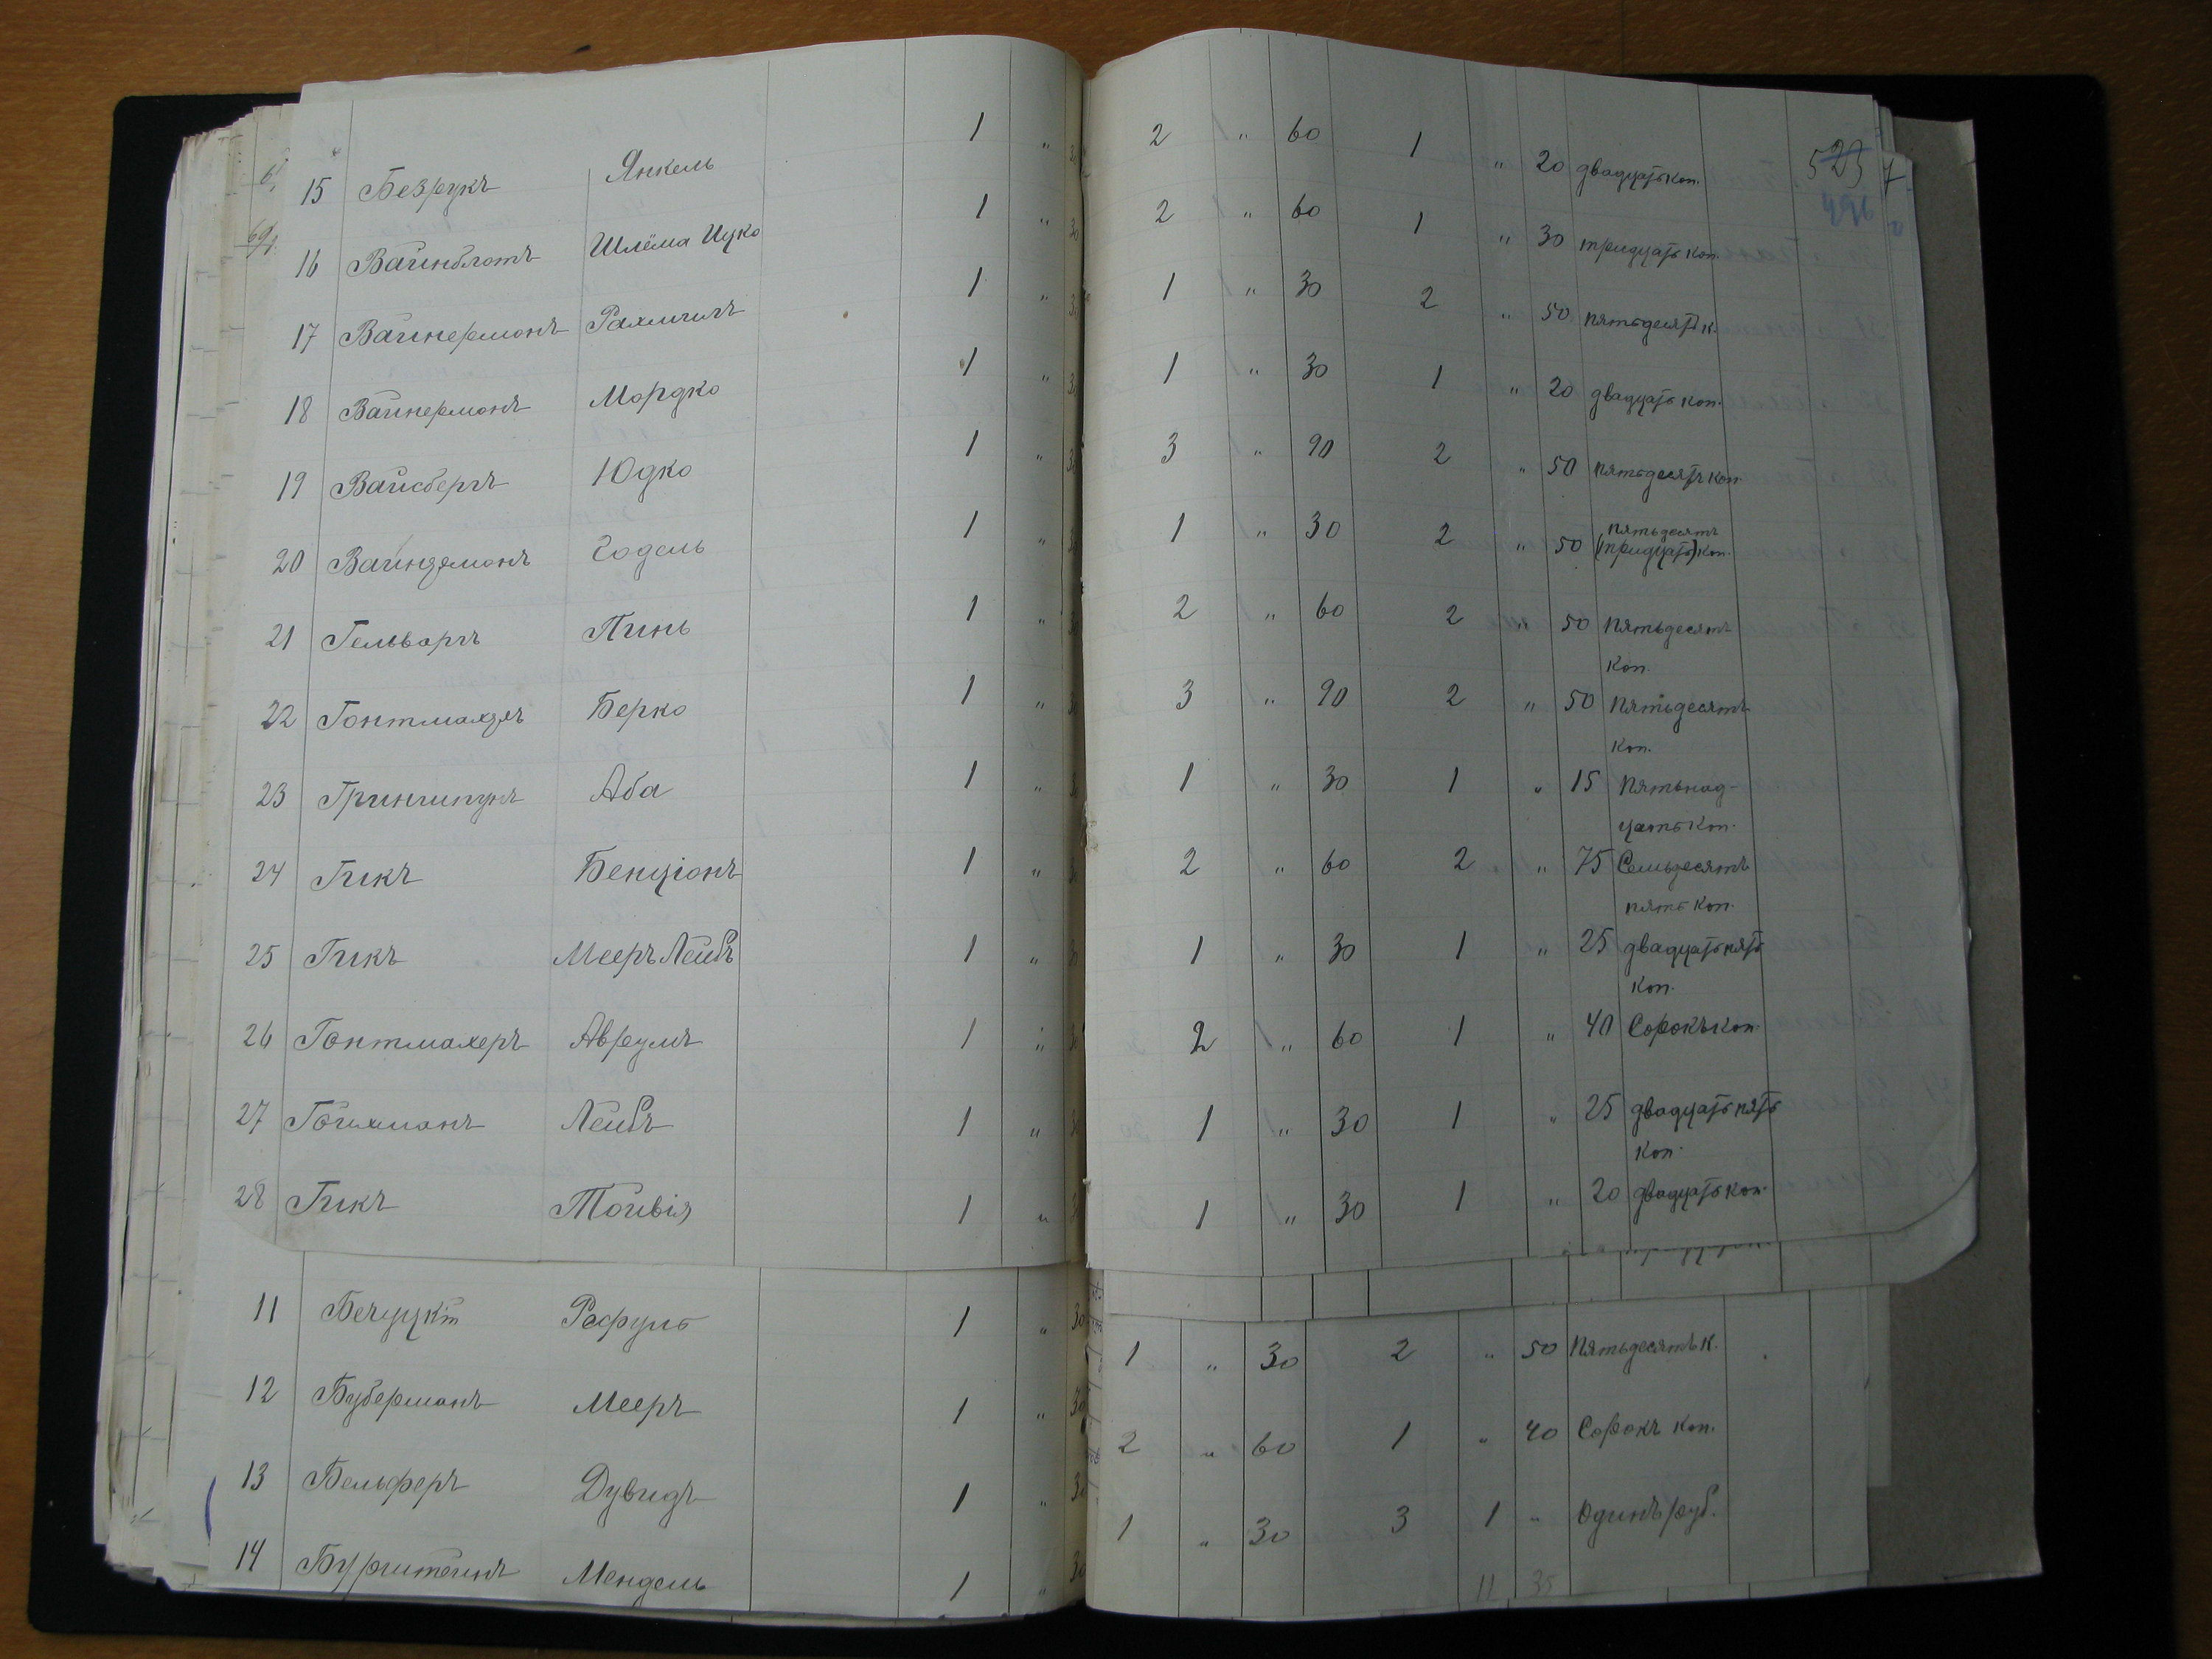 15 Безрукъ Янкель 1 " 2 " 60 1 " 20 двадцать коп. 523
496
16 Вайнблатъ Шлёма Ицко 1 " 30 2 " 60 1 " 30 тридцать коп.
17 Вайнерманъ Рахмилъ 1 " 1 " 30 2 " 50 пятьдесятъ к.
18 Вайнерманъ Мордко 1 " 1 " 30 1 " 20 двадцать коп.
19 Вайсбергъ Юдко 1 " 3 " 90 2 " 50 пятьдесятъ коп.
пятьдесятъ
20 Вайндеманъ Годель 1 " 1 " 30 2 " 50 (тридцать) коп.
21 Гельваргъ Пинь 1 " 2 " 60 2 " 50 пятьдесятъ
коп.
22 Берко 1 " 3 " 90 2 " 50 пятьдесятъ
коп.
23 Гриншпунъ Аба 1 " 1 " 30 1 " 15 пятьнад-
цать коп.
24 Гикъ Бенціонъ 1 " 2 " 60 2 " 75 Семьдесятъ
пять коп.
25 Гикъ Мееръ Лейбъ 1 " 1 " 30 1 " 25 двадцать пять
коп.
26 Гонтмахеръ Аврумъ 1 " 2 " 60 1 " 40 Сорокъ коп.
27 Гойхманъ Лейбъ 1 " 1 " 30 1 " 25 двадцать пять
коп.
28 Гикъ Тойвія 1 " 1 " 30 1 " 20 двадцать коп.
11 Рафуль 1 " 30 1 " 30 2 " 50 пятьдесятъ к.
12 Буберманъ Мееръ 1 " 30 2 " 60 1 " 40 Сорокъ коп.
13 Бельферъ Дувидъ 1 " 30 1 " 30 3 1 " Одинъ руб.
14 Бурштейнъ Мендель 1 " 30
11 35